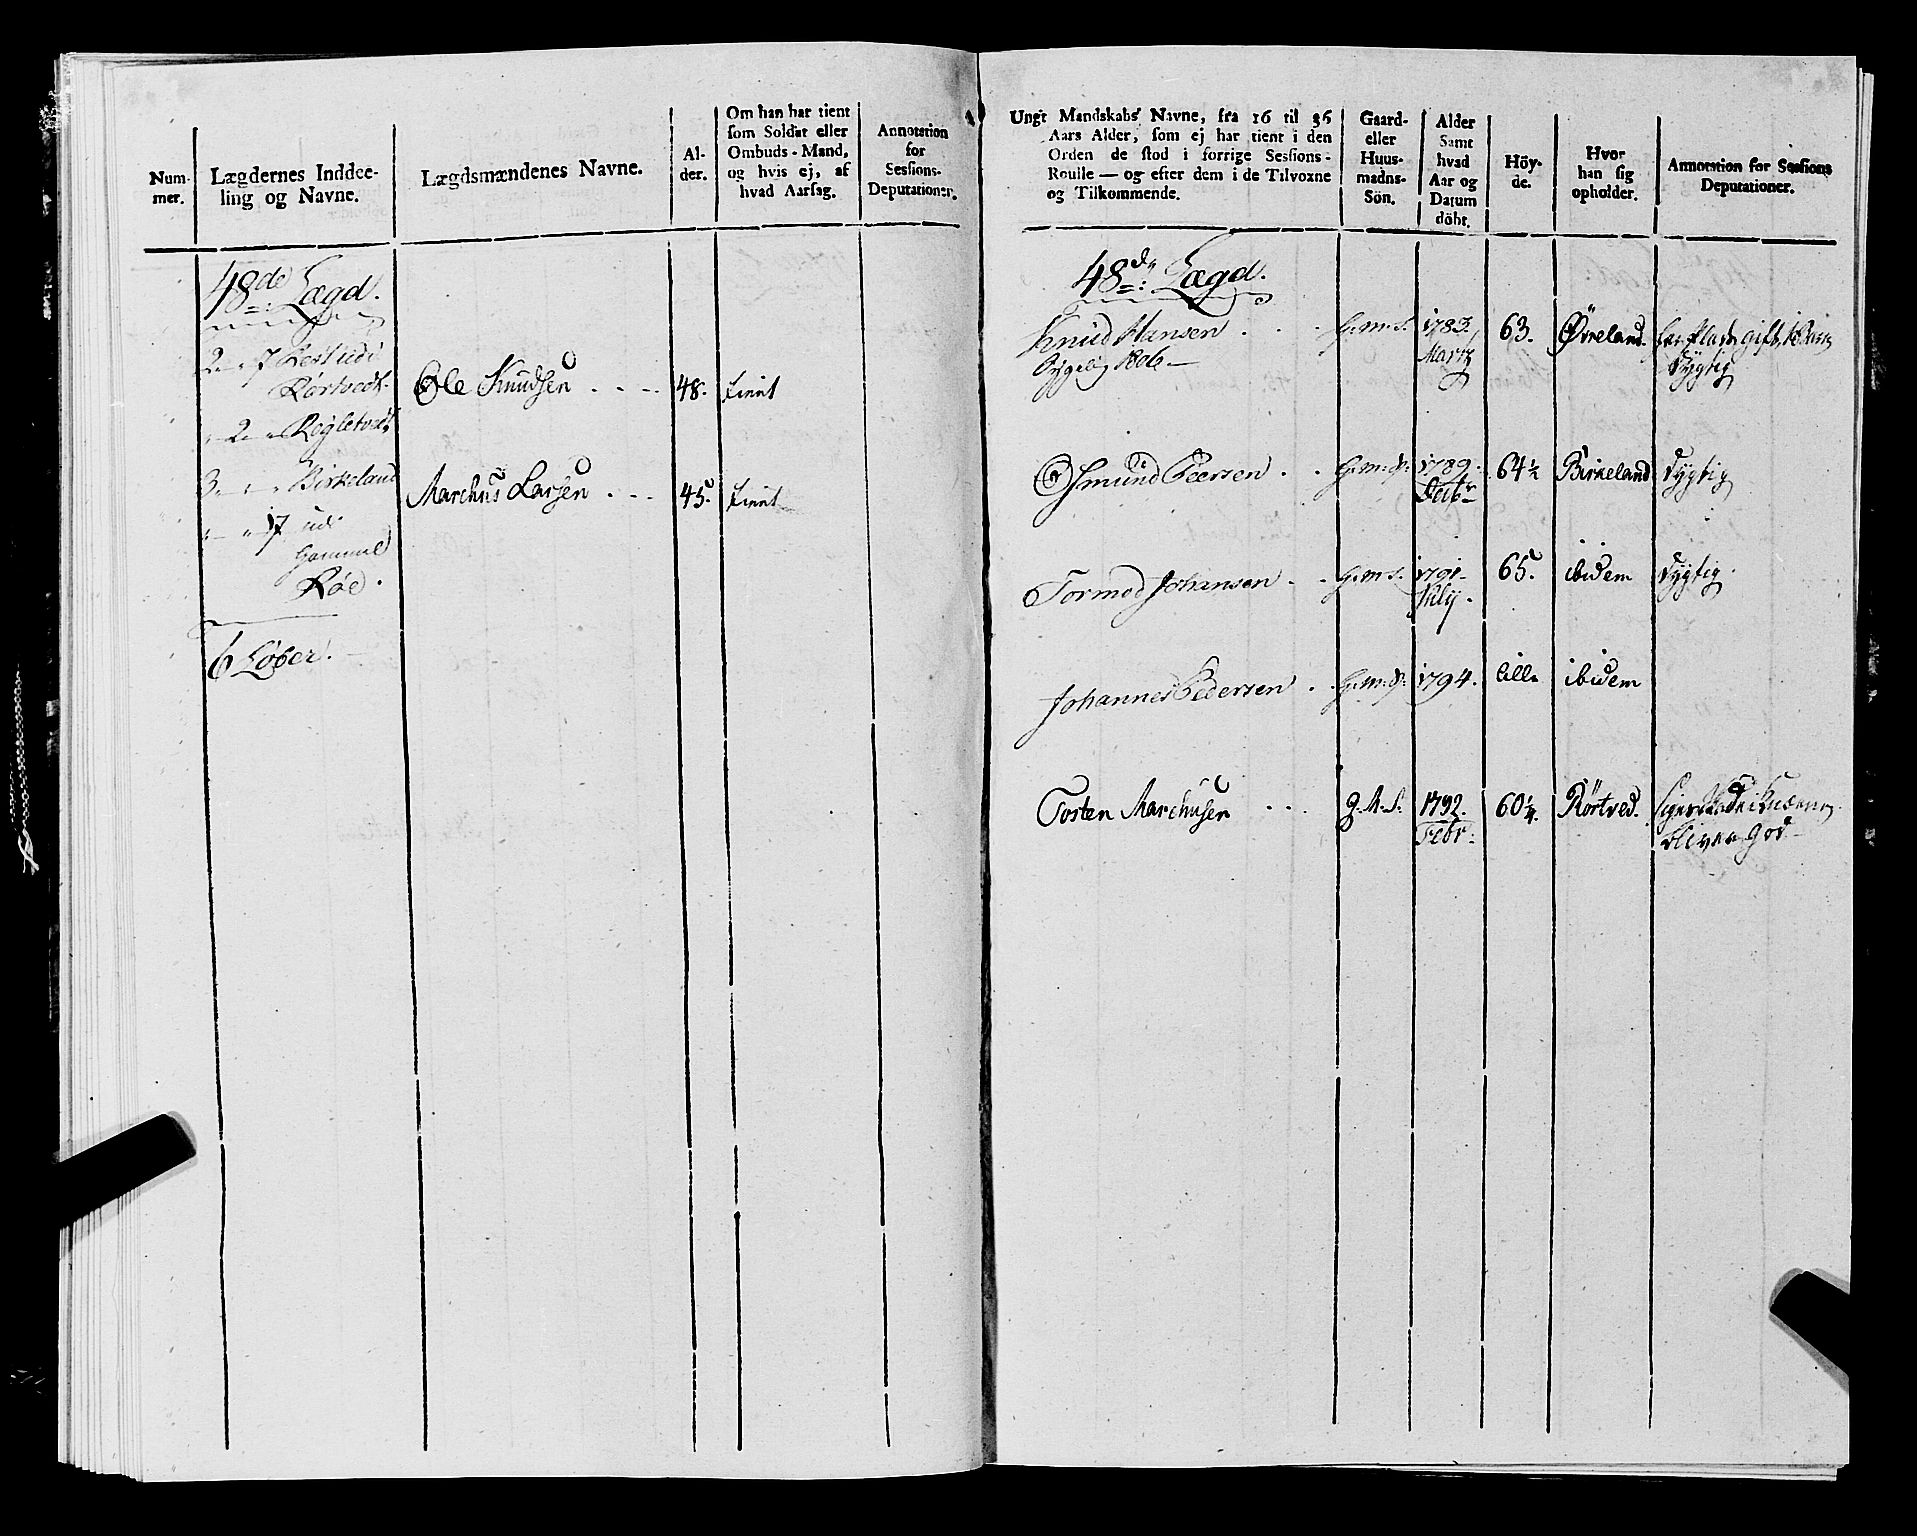 Num-
mer.
Lægdernes Inddee-
ling og Navne.
Lægdsmændenes Navne.
Al-
der.
Om han har tient
som Soldat eller
Ombuds-Mand,
og hvis ej, af
hvad Aarsag.
Annotation
for
Sessions-
Deputationer.
48de Lægd.
Rørtvedt
Ole Knudsen
48.
tient
2
3
Birkeland
Marchus Larsen
45.
tient
Gammel
Røe.
6 Løber.
Ungt Mandskabs Navne, fra 16 til 36
Aars Alder, som ej har tient i den
Orden de stod i forrige Sessions-
Roulle — og efter dem i de Tilvoxne
og Tilkommende.
Gaard-
eller
Huus-
madns-
Sön.
Alder
Samt
hvad
Aar og
Datum
döbt.
Höy-
de.
Hvor
han sig
opholder.
Annotation for Sessions
Deputationer.
48de Lægd.
Knud Hansen G.m.S. 1783. 63. Øvreland. gift
1806 Martz Dygtig
Osmund Peersen G.m.S. 1789. 64½ Birkeland Dygtig
Tormod Johansen G.m.S. 1791. 65. ibidem Dygtig
July.
Johannes Pedersen G.m.S. 1794. lille ibidem
Tosten Marchusen G.M.S. 1792. 60¼. Rörtved.
Febr. bliver god